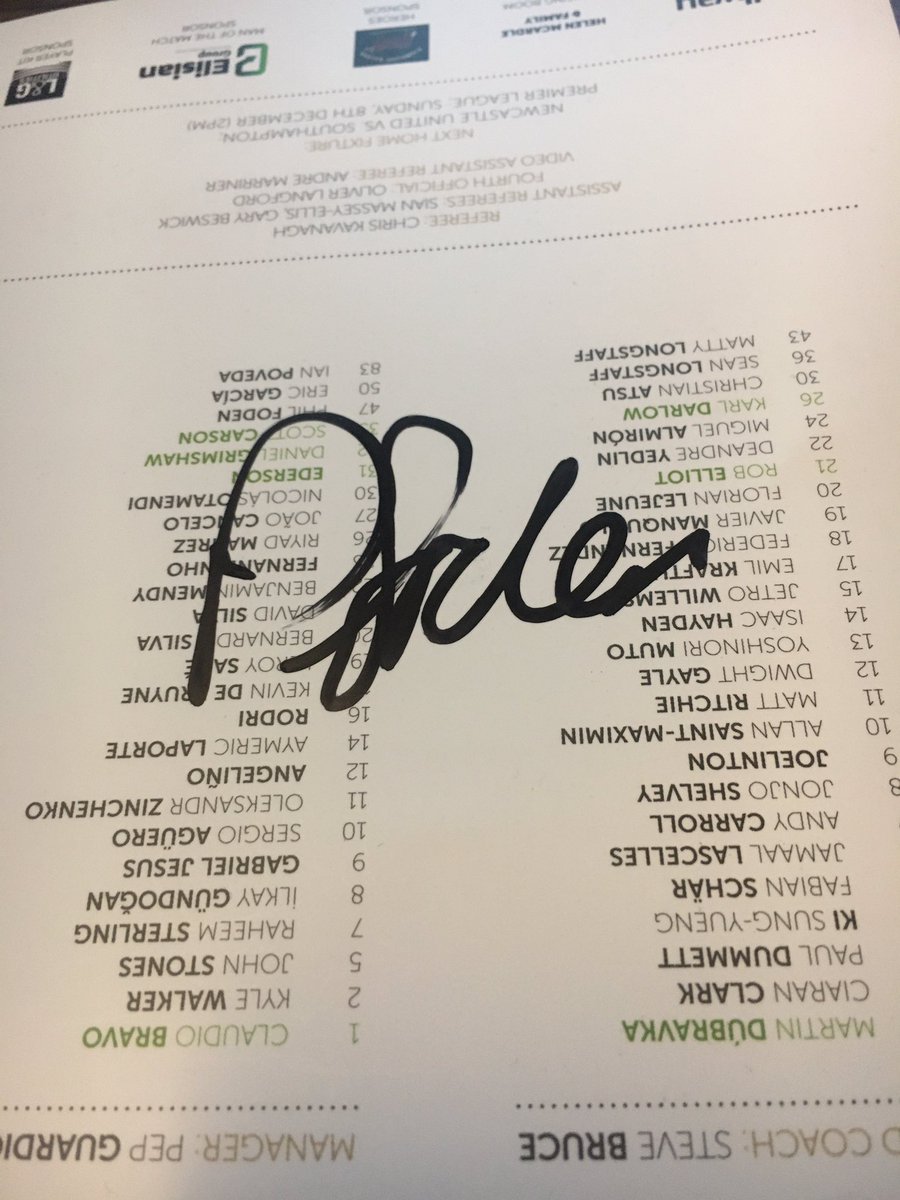 D COACH: STEVE BRUCE
MARTIN DÚBRAVKA
CIARAN CLARK
PAUL DUMMETT
KI SUNG-YUENG
FABIAN SCHÄR
JAMAAL LASCELLES
ANDY CARROLL
8 JONJO SHELVEY
9 JOELINTON
10 ALLAN SAINT-MAXIMIN
11 MATT RITCHIE
12 DWIGHT GAYLE
13 YOSHINORI MUTO
14 ISAAC HAYDEN
15 JETRO WILLEMS
17 EMIL KRAFTH
18 FEDERICO FERNÁNDEZ
19 JAVIER MANQUILLO
20 FLORIAN LEJEUNE
21 ROB ELLIOT
22 DEANDRE YEDLIN
24 MIGUEL ALMIRÓN
26 KARL DARLOW
30 CHRISTIAN ATSU
36 SEAN LONGSTAFF
43 MATTY LONGSTAFF
MANAGER: PEP GUARDIO
1 CLAUDIO BRAVO
2 KYLE WALKER
5 JOHN STONES
7 RAHEEM STERLING
8 İLKAY GÜNDOĞAN
9 GABRIEL JESUS
10 SERGIO AGÜERO
11 OLEKSANDR ZINCHENKO
12 ANGELIÑO
14 AYMERIC LAPORTE
16 RODRI
KEVIN DE BRUYNE
19 LEROY SANÉ
20 BERNARDO SILVA
DAVID SILVA
BENJAMIN MENDY
FERNANDINHO
26 RIYAD MAHREZ
27 JOÃO CANCELO
30 NICOLÁS OTAMENDI
31 EDERSON
DANIEL GRIMSHAW
33 SCOTT CARSON
47 PHIL FODEN
50 ERIC GARCÍA
83 IAN POVEDA
REFEREE: CHRIS KAVANAGH
ASSISTANT REFEREES: SIAN MASSEY-ELLIS, GARY BESWICK
FOURTH OFFICIAL: OLIVER LANGFORD
VIDEO ASSISTANT REFEREE: ANDRE MARRINER
NEXT HOME FIXTURE:
NEWCASTLE UNITED VS. SOUTHAMPTON,
PREMIER LEAGUE, SUNDAY, 8TH DECEMBER (2PM)
HELEN MCARDLE
& FAMILY
HEROES
SPONSOR
Elisian
Group
MAN OF THE MATCH
SPONSOR
L&G
PLAYER KIT
SPONSOR